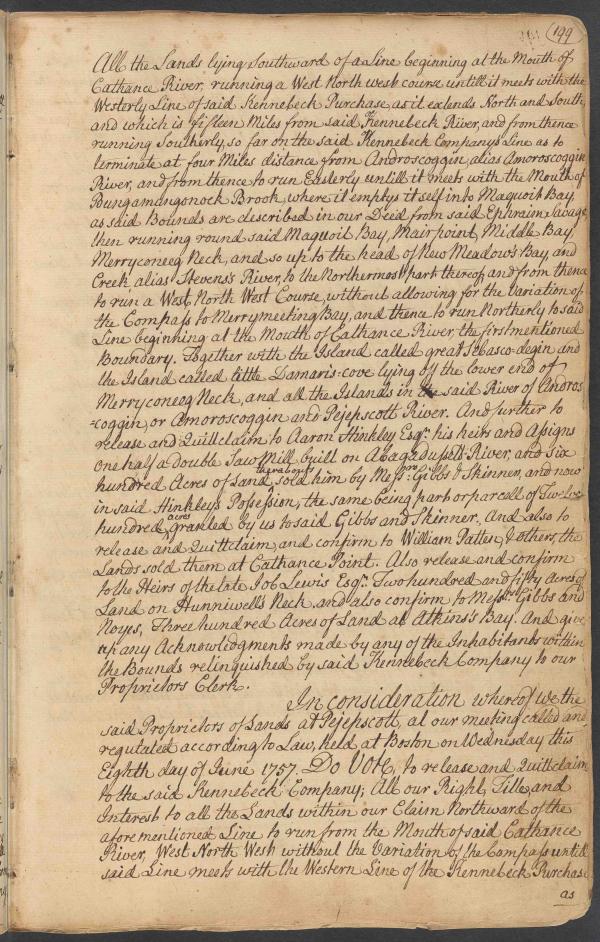 199
All the Lands lying Southward of a Line beginning at the Mouth of
Cathance River, running a West North west course untill it meets with the
Westerly Line of said Kennebeck Purchase, as it extends North and South,
and which is fifteen Miles from said Kennebeck River, and from thence
running Southerly, so far on the said Kennebeck Companys Line as to
terminate at four Miles distance from Androscoggin, alias Amoroscoggin
River, and from thence to run Easterly untill it meets with the Mouth of
Bungamongonock Brook, where it emptys it self into Maquoit Bay,
as said Bounds are described in our Deed from said Ephraim Savage,
then running round said Maquoit Bay, Mair point, Middle Bay,
Merryconeeg Neck, and so up to the head of New Meadow's Bay, and
Creek alias Stevens's River, to the Northermost part thereof, and from thence
to run a West North West Course, without allowing for the Variation of
the Compass to Merrymeeting Bay, and thence to run Northerly to said
Line beginning at the Mouth of Cathance River, the first mentioned
Boundary. Together with the Island called great Sebasco-degin and
the Island called little Damaris-cove lying off the lower end of
Merryconeog Neck, and all the Islands in the said River of Andros
-coggin, or Amoroscoggin and Pejepscott River. And further to
release and Quittclaim to Aaron Hinkley Esqr. his heirs and Assigns
one half a double Saw Mill built on Abagadussett River, and six
hundred Acres of Land thereabouts, sold him by Messrs. Gibbs & Skinner, and now
in said Hinkley's Possession, the same being part or parcell of Twelve
hundred acres granted by us to said Gibbs and Skinner. And also to
release and Quittclaim, and confirm to William Patten, & others, the
Lands sold them at Cathance Point. Also release and confirm
to the Heirs of the late Job Lewis Esqr. Two hundred and fifty Acres of
Land on Hunniwell's Neck, and also confirm to Messrs. Gibbs and
Noyes, Three hundred Acres of Land at Atkins's Bay. And give
up any Acknowledgments made by any of the Inhabitants within
the Bounds relinguished by said Kennebeck Company to our
Proprietors Clerk.
In consideration whereof we the
said Proprietors of Lands at Pejepscott, at our meeting called and
regulated according to Law, held at Boston on Wednesday this
Eighth day of June 1757. Do Vote, to release and Quittclaim
to the said Kennebeck Company; All our Right, Title, and
Interest to all the Lands within our Claim Northward of the
aforementioned Line to run from the Mouth of said Cathance
River, West North West without the Variation of the Compass untill
said Line meets with the Western Line of the Kennebeck Purchase
as